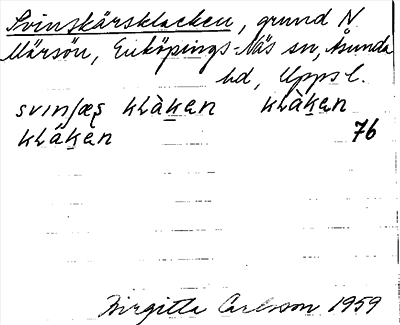 Svinskärsklacken, grund N
Märsön, Enköpings-Näs sn, Åsunda
hd, Upps l.
svinʃæʂ klàḵen klàḵen
klàḵen 76
Birgitta Carlsson 1959